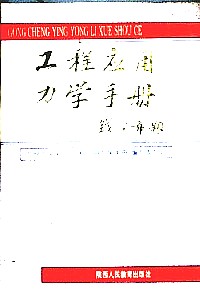 GONG CHENG YING YONG LI XUE SHOU CE
工程应用
力学手册
陕西人民教育出版社